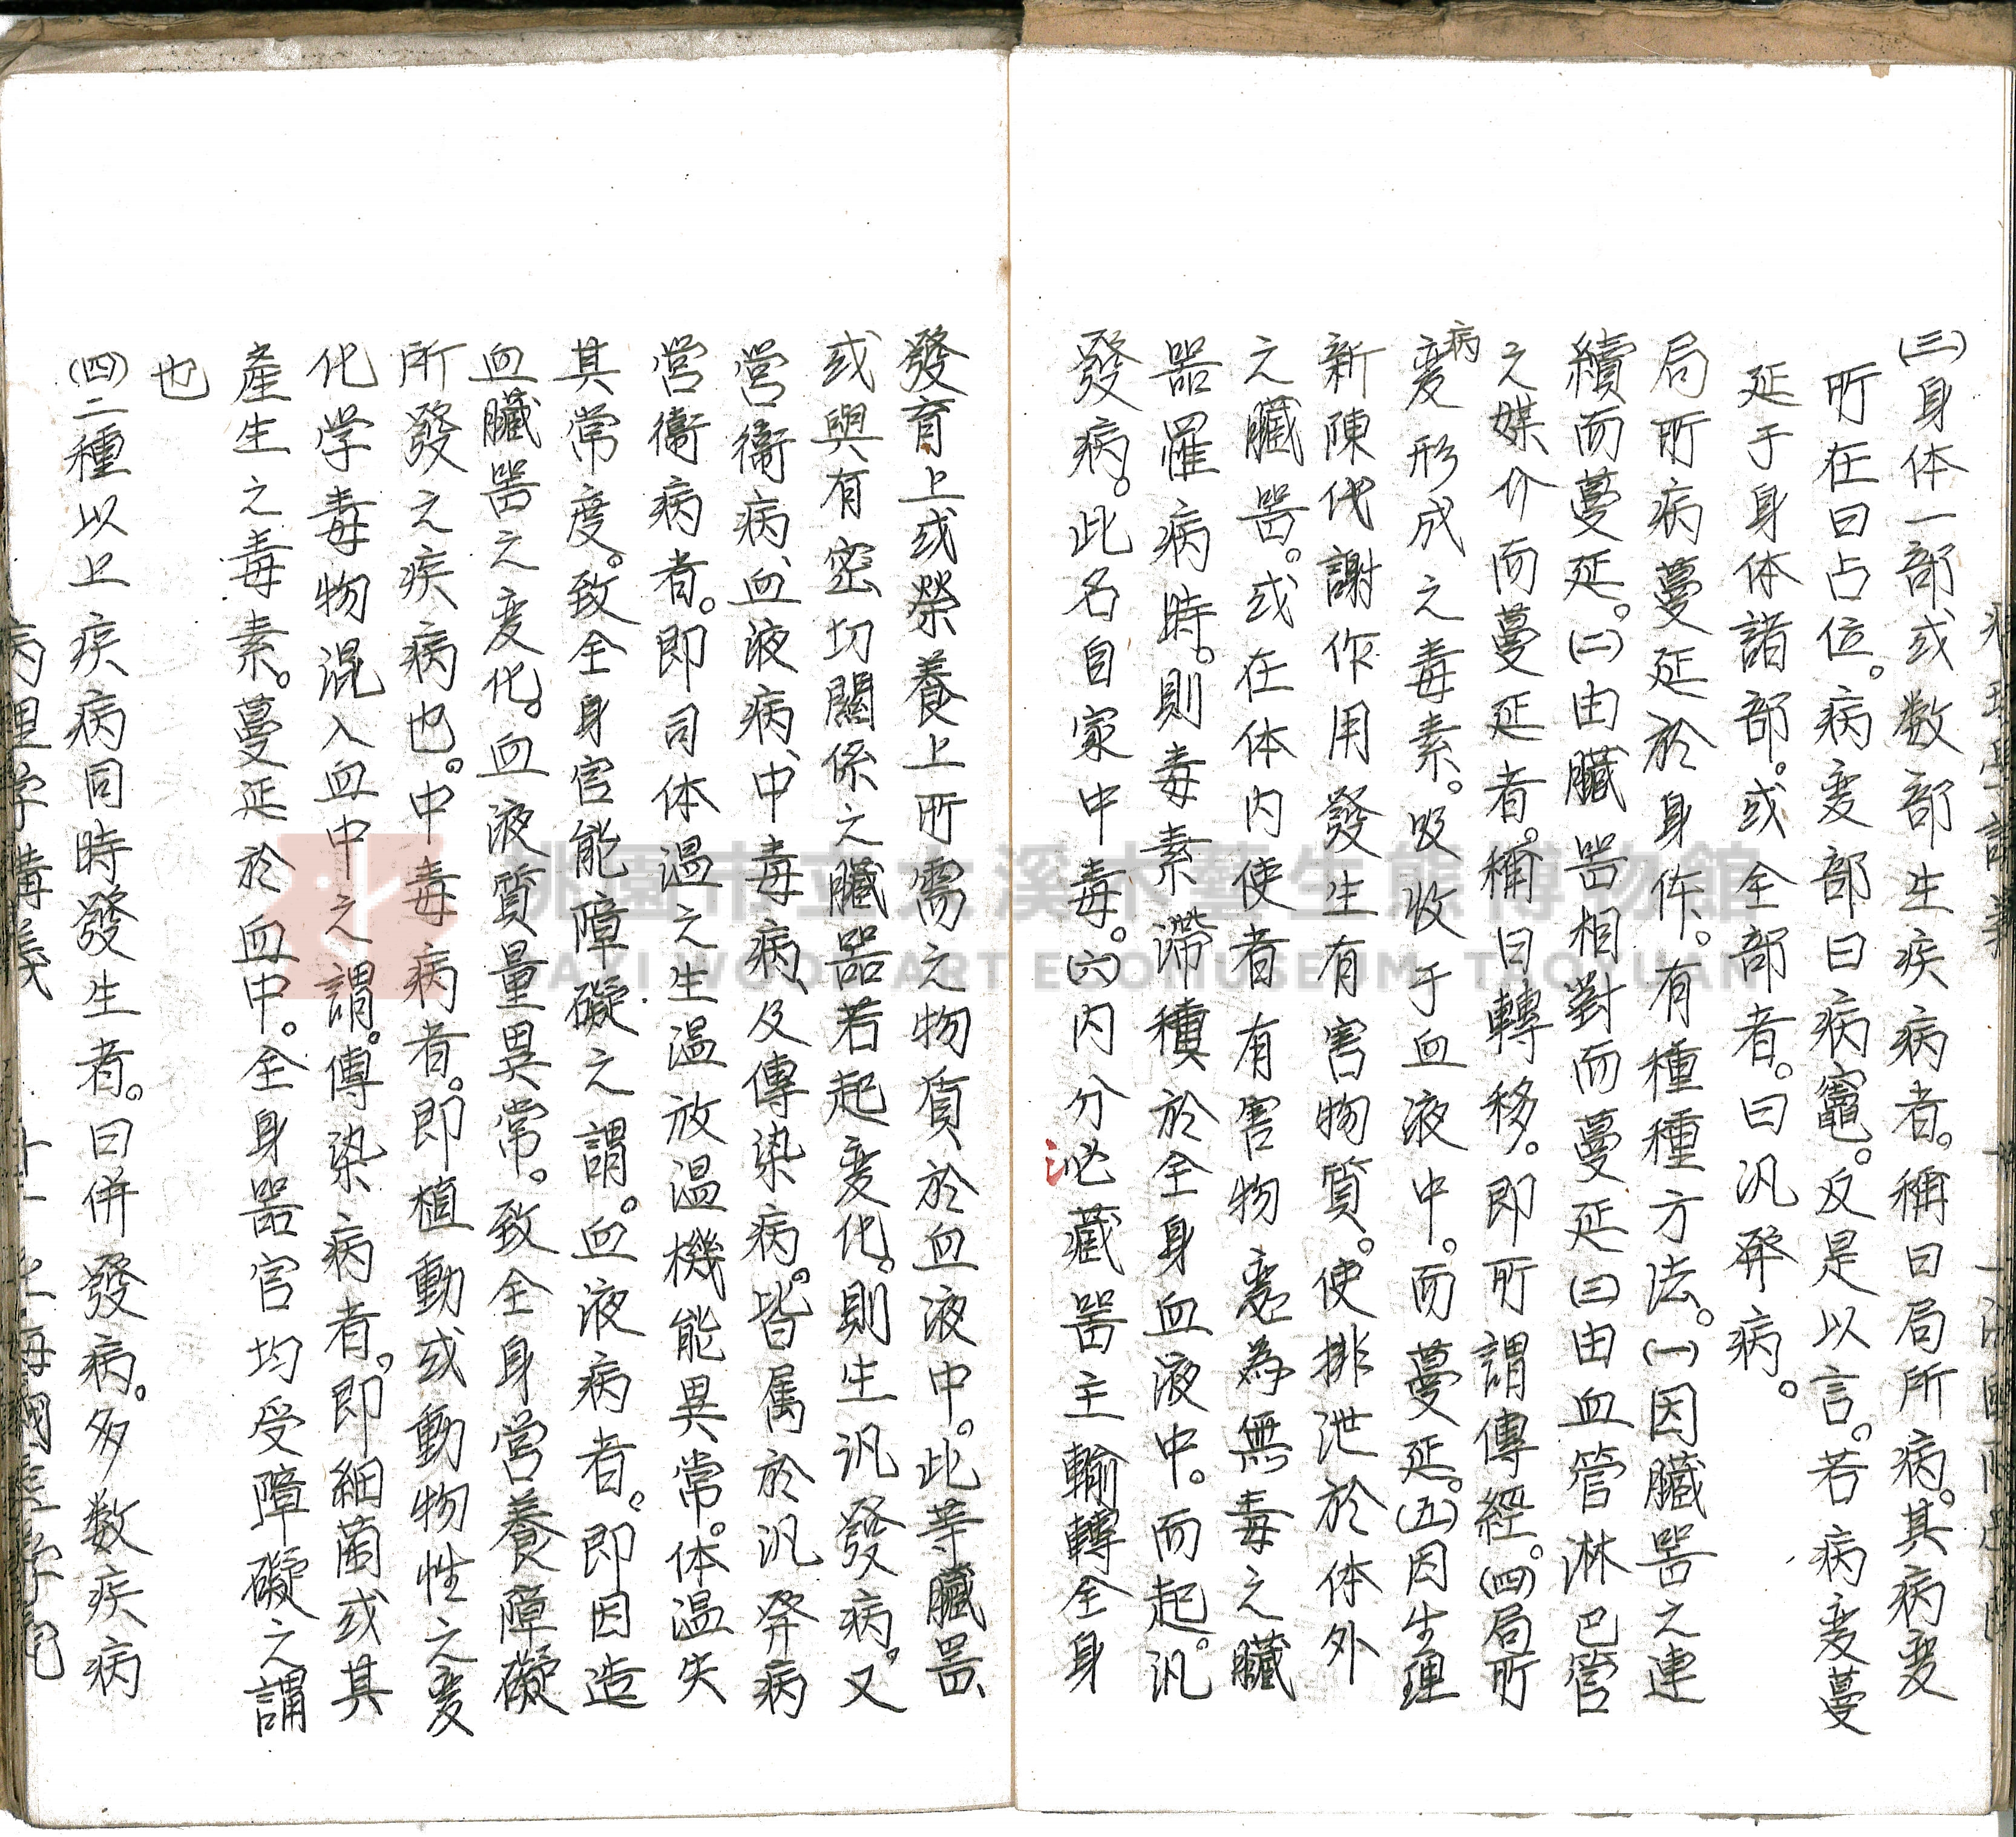 (三)身体一部或数部生疾病者。稱曰局所病。其病变
所在曰占位。病变部曰病竈。反是以言。若病变蔓
延于身体諸部。或全部者。曰汎發病。
局所病蔓延於身体。有種種方法。(一)因臟器之連
續而蔓延。(二)由臟器相對而蔓延(三)由血管淋巴管
之媒介而蔓延者。稱曰轉移。即所謂傳經。(四)局所
病变形成之毒素。吸收于血液中。而蔓延。(五)因生理
新陳代謝作用發生有害物質。使排泄於体外
之臟器。或在体内使者有害物變為無毒之臟
器罹病時。則毒素滯積於全身血液中。而起。汎
發病。此名自家中毒。(六)内分泌藏器主輸轉全身
發育上或榮養上所需之物質於血液中。此等臟器、
或與有密切關係之臟器若起变化。則生汎發病。又
营衞病、血液病、中毒病、及傳染病。皆属於汎發病
营衞病者。即司体温之生温放温機能異常。体温失
其常度。致全身官能障礙之謂。血液病者。即因造
血臟器之变化。血液質量異常。致全身营養障礙
所發之疾病也。中毒病者。即植動或動物性之变
化学毒物混入血中之謂。傳染病者。即細菌或其
產生之毒素。蔓延於血中。全身器官均受障礙之謂
也
(四)二種以上疾病同時發生者。曰併發病。多数疾病
桃園市立大溪木藝生態博物館
DAXI WOOD ART ECOMUSEUM TAOYUAN